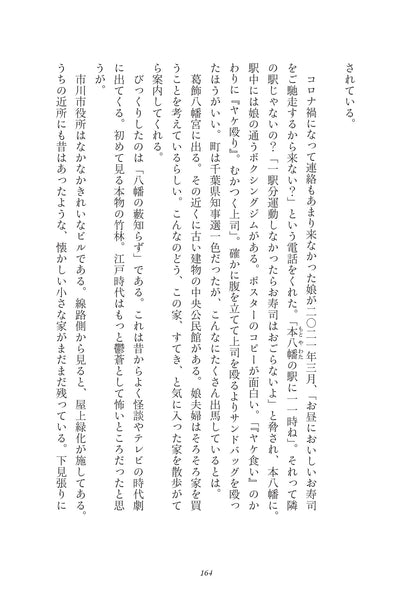 されている。
コロナ禍になって連絡もあまり来なかった娘が二〇二一年三月、「お昼においしいお寿司
をご馳走するから来ない？」という電話をくれた。「本八幡の駅に一一時ね」。それって隣
もとやわた
の駅じゃないの？「一駅分運動しなかったらお寿司はおごらないよ」と脅され、本八幡に。
駅中には娘の通うボクシングジムがある。ポスターのコピーが面白い。「『ヤケ食い』のか
わりに『ヤケ殴り』。むかつく上司」。確かに腹を立てて上司を殴るよりサンドバッグを殴っ
たほうがいい。町は千葉県知事選一色だったが、こんなにたくさん出馬しているとは。
葛飾八幡宮に出る。その近くに古い建物の中央公民館がある。娘夫婦はそろそろ家を買
うことを考えているらしい。こんなのどう、この家、すてき、と気に入った家を散歩がて
ら案内してくれる。
びっくりしたのは「八幡の藪知らず」である。これは昔からよく怪談やテレビの時代劇
に出てくる。初めて見る本物の竹林。江戸時代はもっと鬱蒼として怖いところだったと思
うが。
市川市役所はなかなかきれいなビルである。線路側から見ると、屋上緑化が施してある。
うちの近所にも昔はあったような、懐かしい小さな家がまだまだ残っている。下見張りに
164